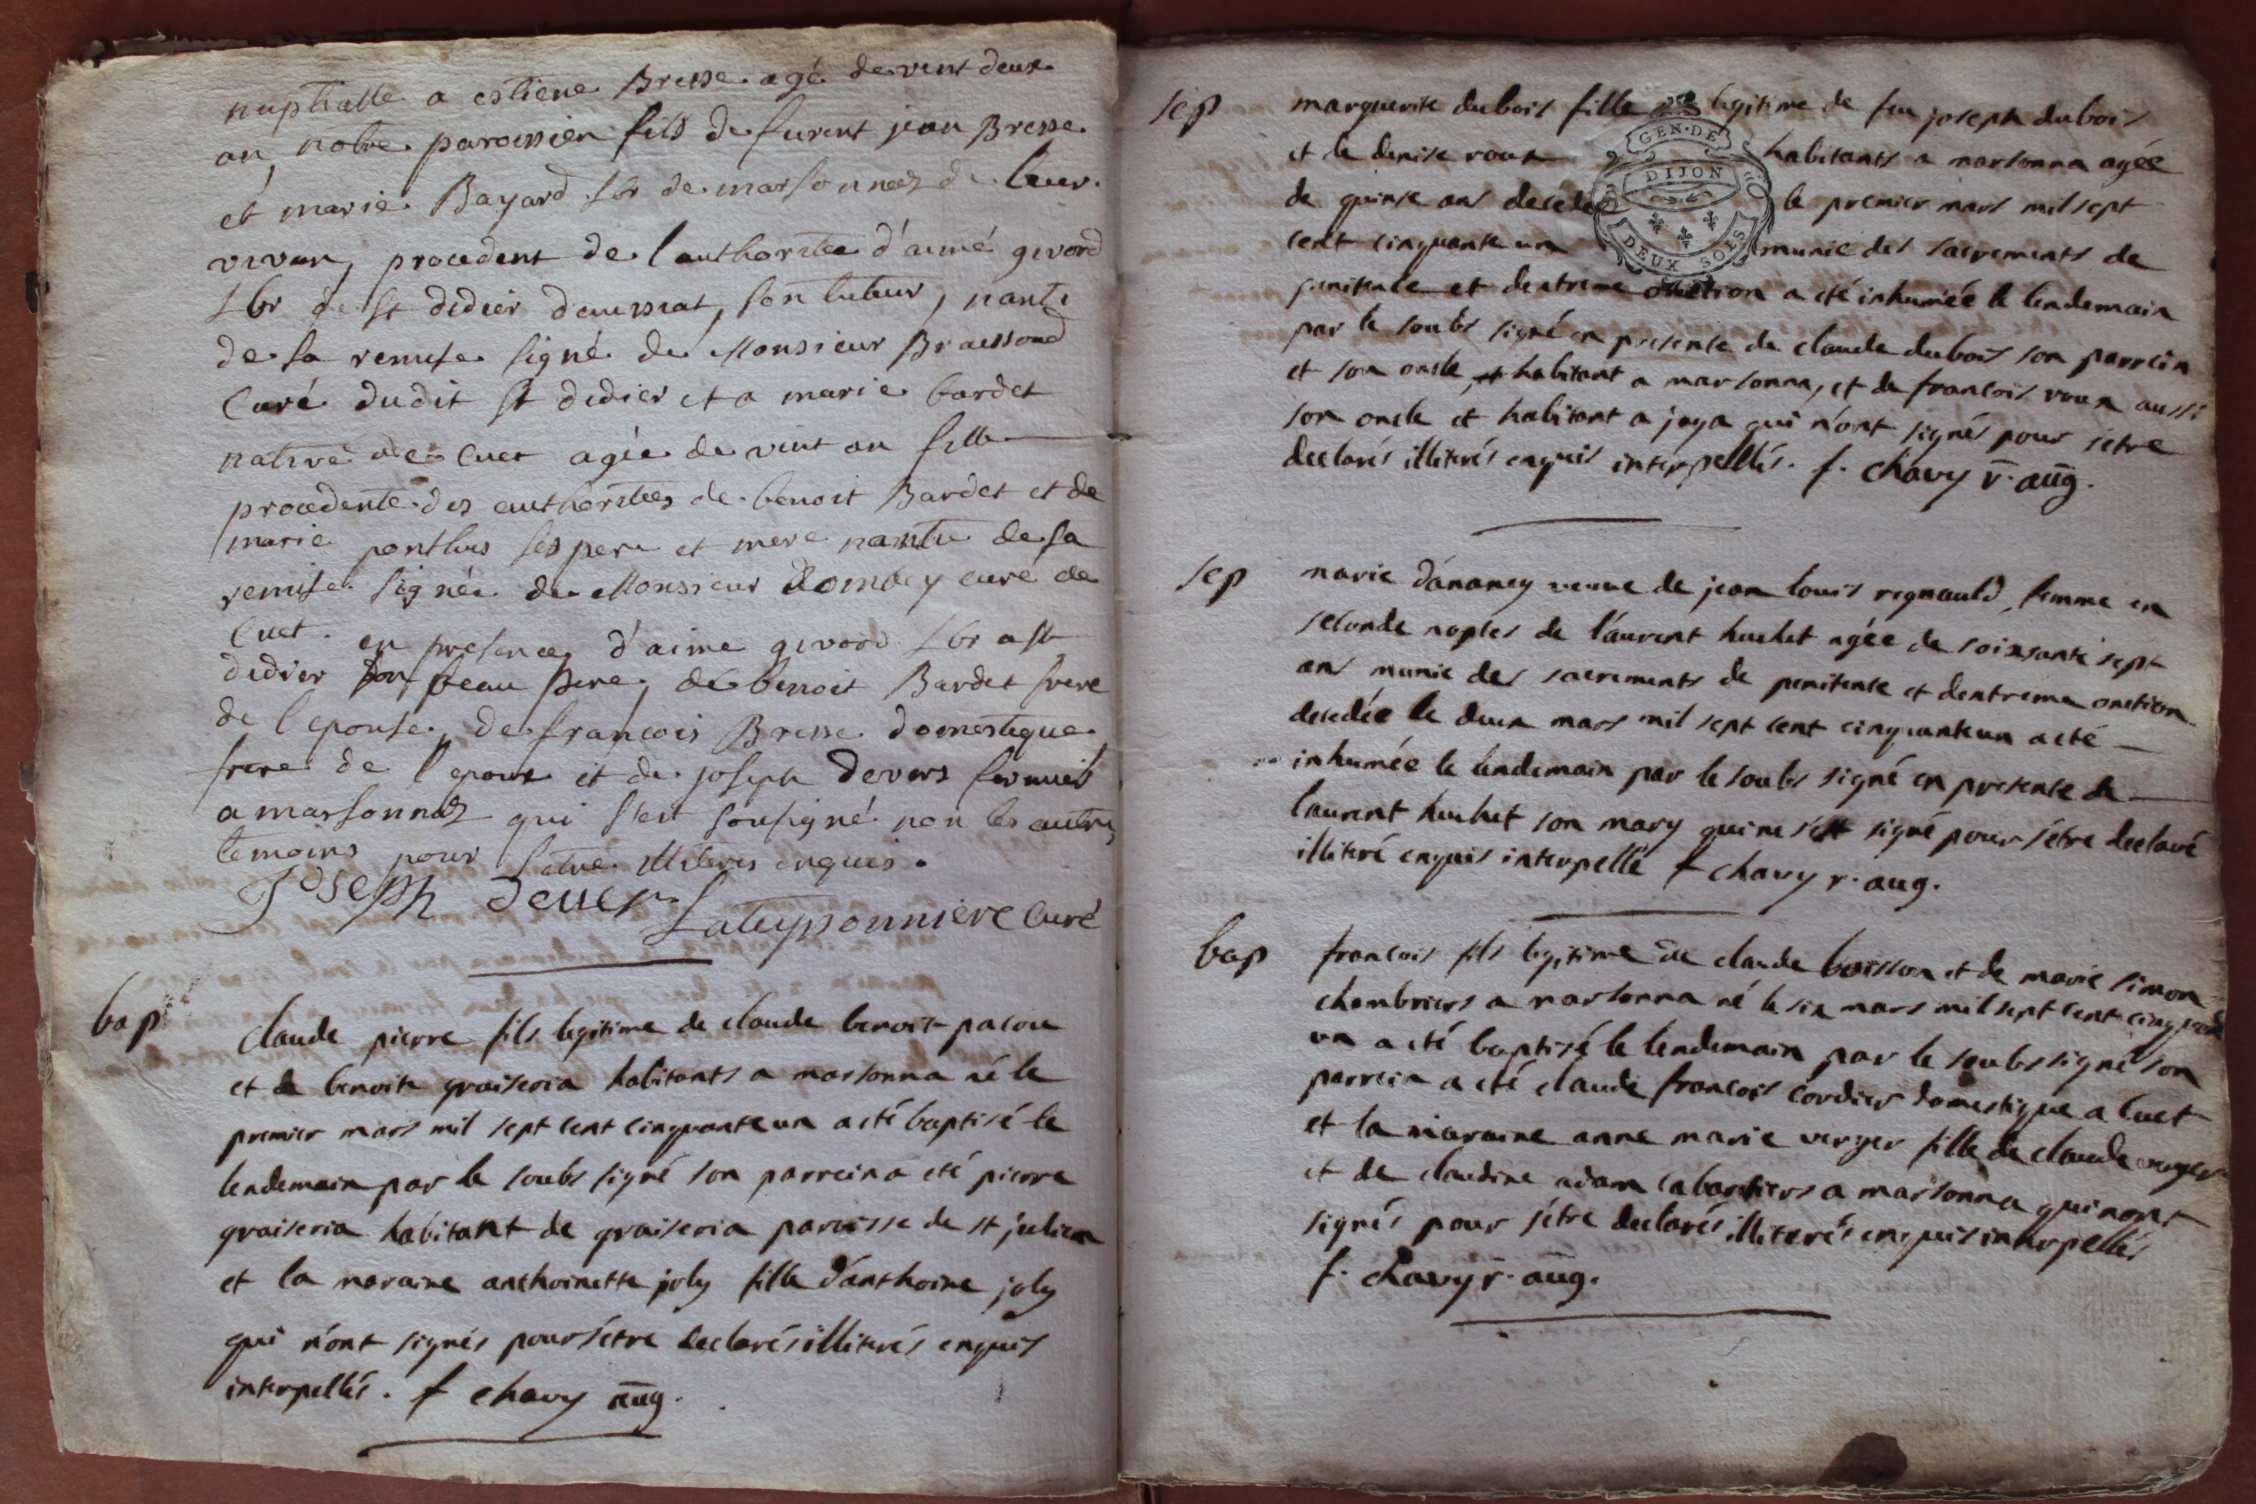 nuptialle a estiene Bresse agé de vint deux
an, notre paroissien fils de furent jean Bresse
et marie Bayard lbr de marsonnaz de leur
vivan, procedent de l'authoritée d'aimé givord
lbr de st didier d'aussiat, son tuteur, nanti
de sa remise signé de Monsieur
Curé dudit st didier et a marie bardet
native de Cuet agée de vint an fille
procedente des authoritées de benoit Bardet et de
marie ponthus ses pere et mere nantie de sa
remise signée de Monsieur Dombey curé de
Cuet. en presence d'aime givord lbr a st
didier son beau pere, de benoit Bardet frere
de l'epouse, de françois Bresse domestique
frere de l'epoux et de joseph devers
a marsonnaz qui s'est sousigné non les autres
temoins pour s'etre illiteres enquis.
Joseph deuer
Lateyssonniere Curé
bap
Claude pierre fils legitime de claude benoit pacou
et de benoite graiseria habitants a marsonna né le
premier mars mil sept cent cinquante un a eté baptisé le
lendemain par le soubs signé son parrein a eté pierre
graiseria habitant de graiseria paroisse de st julien
et la maraine anthoinette joly fille d'anthoine joly
qui n'ont signés pour s'étre declarés illiterés enquis
interpellés. f chavy aug.
sep
marguerite dubois fille legitime de feu joseph dubois
et de denise roux habitants a marsonna agée
de quinse ans decedee le premier mars mil sept
cent cinquante un munie des sacrements de
penitence et d'extreme onction a eté inhumée le lendemain
par le soubs signé en presence de claude dubois son parrein
et son oncle, habitant a marsonna, et de françois roux aussi
son oncle et habitant a jaya qui n'ont signés pour s'etre
declarés illiterés enquis interpellés. f. chavy r. aug.
GEN. DE
DIJON
DEUX SOLS
sep
marie d'ananey veuve de jean louis regnauld, femme en
seconde noples de l'aurent huchet agée de soixsante sept
ans munie des sacrements de penitence et d'extreme onction
decedée le deux mars mil sept cent cinquante un a eté
inhumée le lendemain par le soubs signé en presence de
laurent huchet son mary qui ne s'est signé pour s'étre declaré
illiteré enquis interpellé f chavy r. aug.
bap
françois fils legitime de claude boisson et de marie simon
chambriers a marsonna né le six mars mil sept cent cinquante
un a eté baptisé le lendemain par le soubs signé son
parrein a eté claude françois cordier domestique a Cuet
et la maraine anne marie verger fille de claude verger
et de claudine adam cabartiers a marsonna qui n'ont
signés pour s'étre declarés illiterés enquis interpellés
f. chavy r. aug.